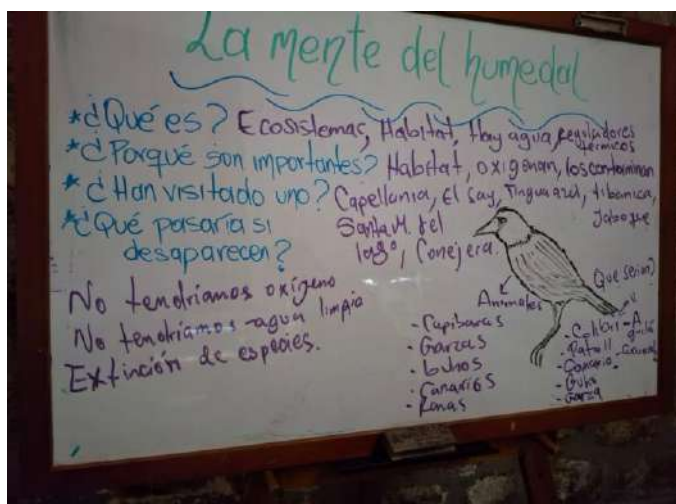 La mente del humedal
*¿Qué es? Ecosistemas, Habitat, Hay agua, reguladores termicos
*¿Porqué son importantes? Habitat, oxigenan, los contaminan
*¿Han visitado uno? Capellania, El Say, Tingua azul, tibanica, Jaboque
*¿Qué pasaría si desaparecen?
Santa M. del lago, Conejera.
No tendriamos oxígeno
No tendriamos agua limpia
Extinción de especies.
Animales
- Capibaras
- Garzas
- buhos
- Canarios
- Ranas
Que serian?
- Colibri - A
- Canario
- Buho
- Garza